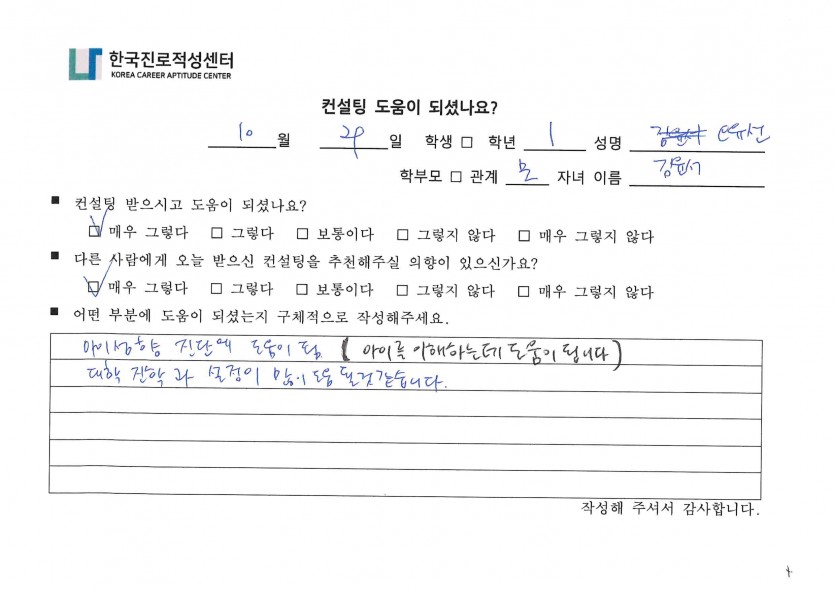 한국진로적성센터
KOREA CAREER APTITUDE CENTER
컨설팅 도움이 되셨나요?
10 월 29 일 학생 □ 학년 1 성명
학부모 □ 관계 모 자녀 이름 김윤서
■ 컨설팅 받으시고 도움이 되셨나요?
☑ 매우 그렇다 □ 그렇다 □ 보통이다 □ 그렇지 않다 □ 매우 그렇지 않다
■ 다른 사람에게 오늘 받으신 컨설팅을 추천해주실 의향이 있으신가요?
☑ 매우 그렇다 □ 그렇다 □ 보통이다 □ 그렇지 않다 □ 매우 그렇지 않다
■ 어떤 부분에 도움이 되셨는지 구체적으로 작성해주세요.
아이성향 진단에 도움이 됨. (아이를 이해하는데 도움이 됩니다)
대학 진학 과 설정이 많이 도움 될것같습니다.
작성해 주셔서 감사합니다.